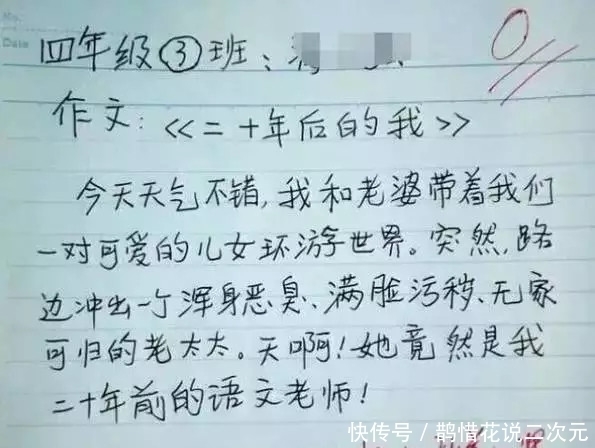 No.
Date
四年级③班:
0
作文:<<二十年后的我>>
今天天气不错,我和老婆带着我们
一对可爱的儿女环游世界。突然,路
边冲出一个浑身恶臭、满脸污秽、无家
可归的老太太。天啊!她竟然是我
二十年前的语文老师!
快传号/鹊惜花说二次元